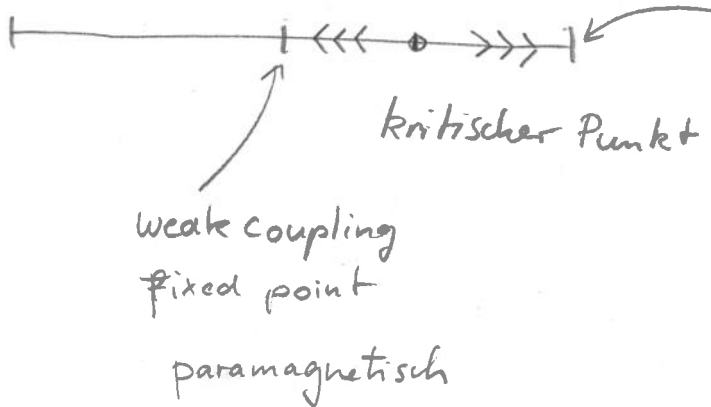 kritischer Punkt
weak coupling
fixed point
paramagnetisch